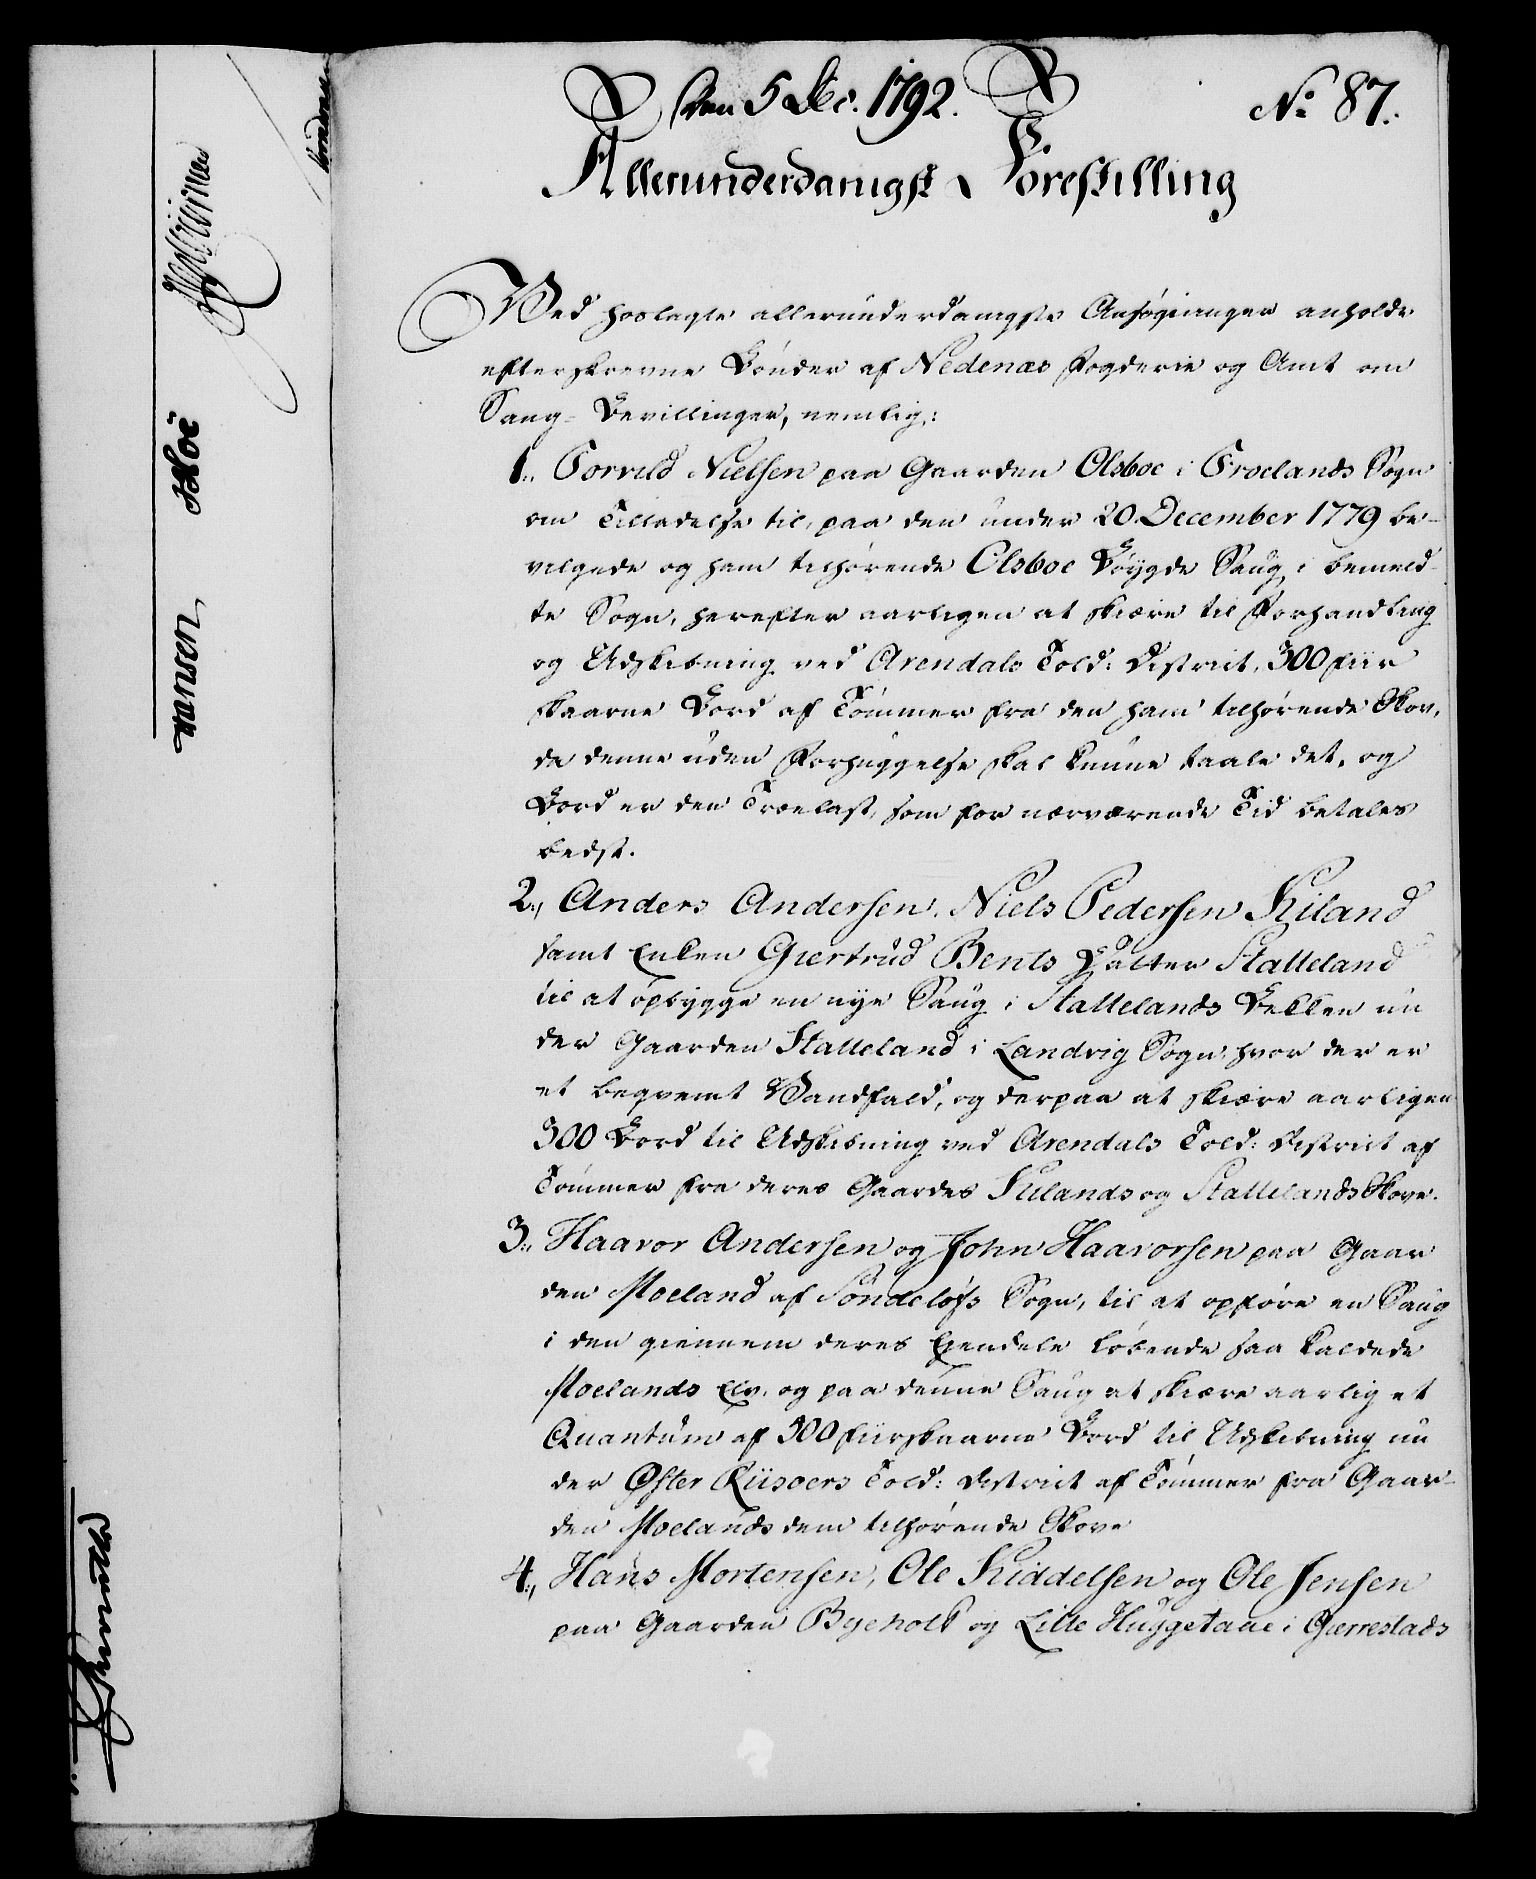 Den 5 Dec. 1792.
No 87.
Allerunderdanigst Forestilling
Ved hoslagte allerunderdanigste Ansøgninger anholde
efterskrevne Bønder af Nedenæs Fogderie og Amt om
Saug-Bevillinger, nemlig:
1., Torvild Nielsen paa Gaarden Olsboe i Froelands Sogn
om Tilladelse til, paa den under 20 December 1779 be-
vilgede og ham tilhørende Olsboe Bøygde Saug i bemeld-
te Sogn, herefter aarligen at skiære til Forhandling
og Udskibning ved Arendals Told: District, 300 fiir
skaarne Bord af Tømmer fra den ham tilhørende Skov,
da denne uden Forhuggelse skal kunne taale det, og
Bord er den Trælast, som for nærværende Tid betales
bedst.
2., Anders Andersen, Niels Pedersen Kiland
samt Enken Giertrud Bents Datter Stalleland
til at opbygge en nye Saug i Stallelands Bekken un
der Gaarden Stalleland i Landvig Sogn, hvor der er
et beqvemt Vandfald, og derpaa at skiære aarligen
300 Bord til Udskibning ved Arendals Told: District af
Tømmer fra deres Gaardes Kilands og Stallelands Skove.
3., Haavor Andersen og John Haavorsen paa Gaar
den Moeland af Søndeløfs Sogn, til at opføre en Saug
i den giennem deres Eyendele løbende saa kaldede
Moelands Elv, og paa denne Saug at skiære aarlig et
Quantum af 300 fiirskaarne Bord til Udskibning un
der Øster Riisoers Told: District af Tømmer fra Gaar-
den Moelands dem tilhørende Skove
4., Hans Mortensen, Ole Kiddelsen og Ole Jensen
paa Gaarden Byeholt og Lille Huggetane i Gierrestads
Hoë
Hansen